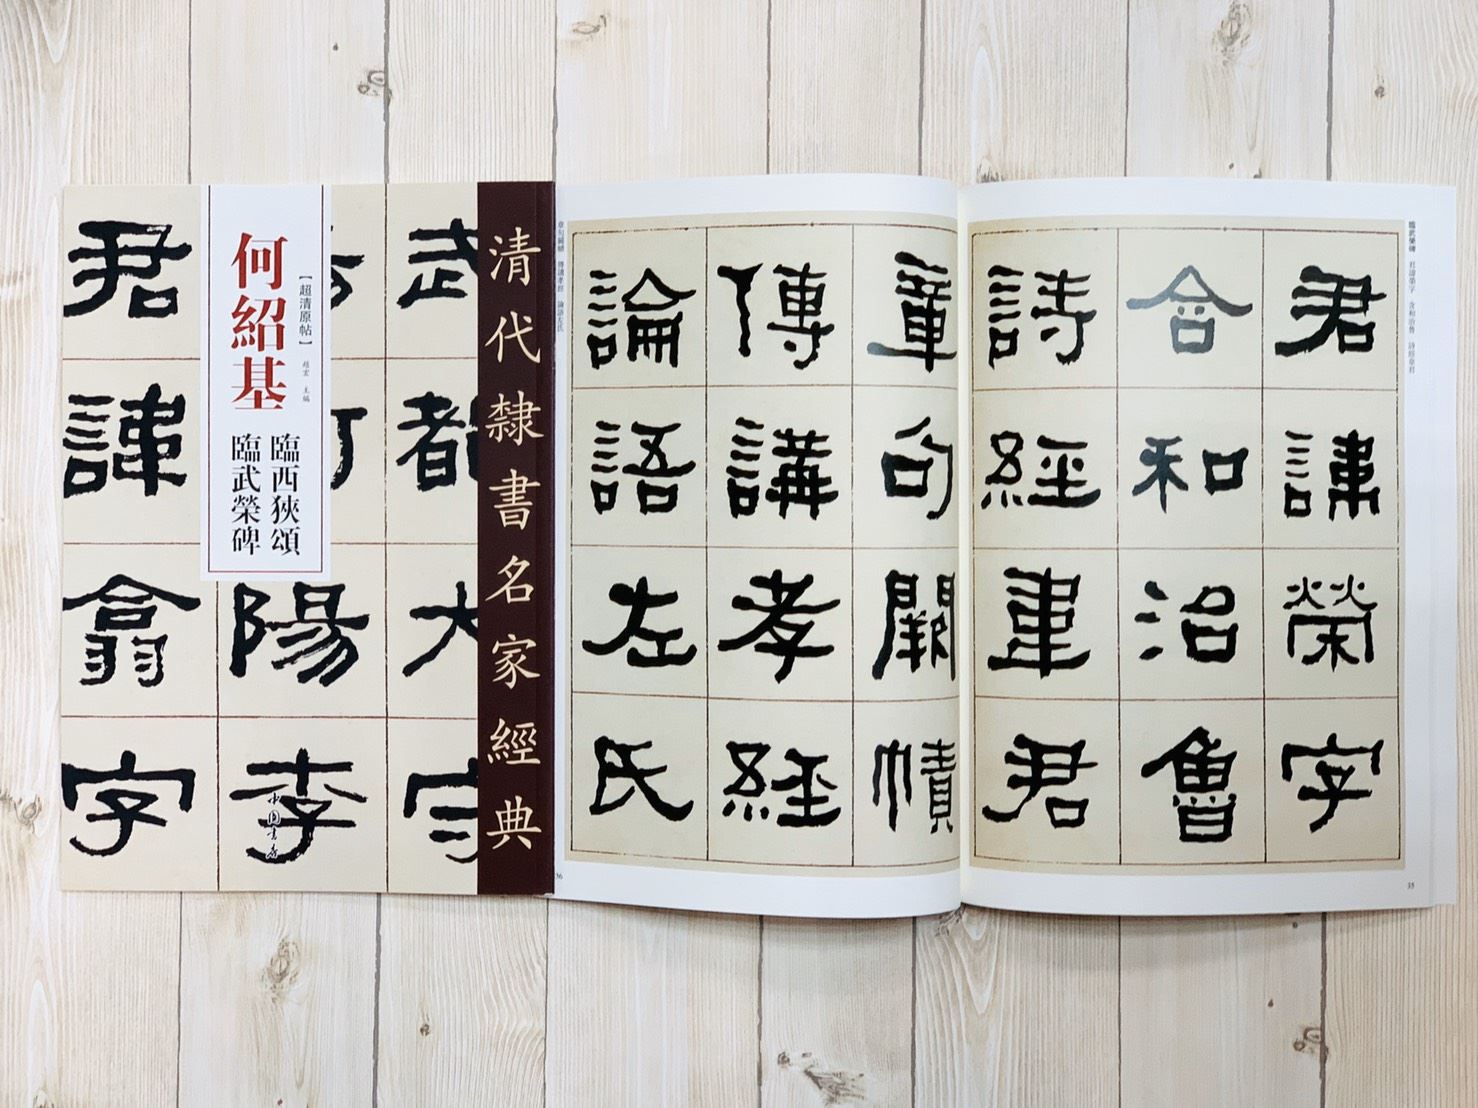 清代隸書名家經典
【超清原帖】
趙宏 主編
何紹基
臨西狹頌
臨武榮碑
武都大守
陽李
君諱翕字
中國書店
臨武榮碑 君諱榮字 含和治魯 詩經韋君
君諱榮字
含和治魯
詩經韋君
35
章句闕幘
傳講孝經
論語左氏
章句闕幘 傳講孝經 論語左氏
36